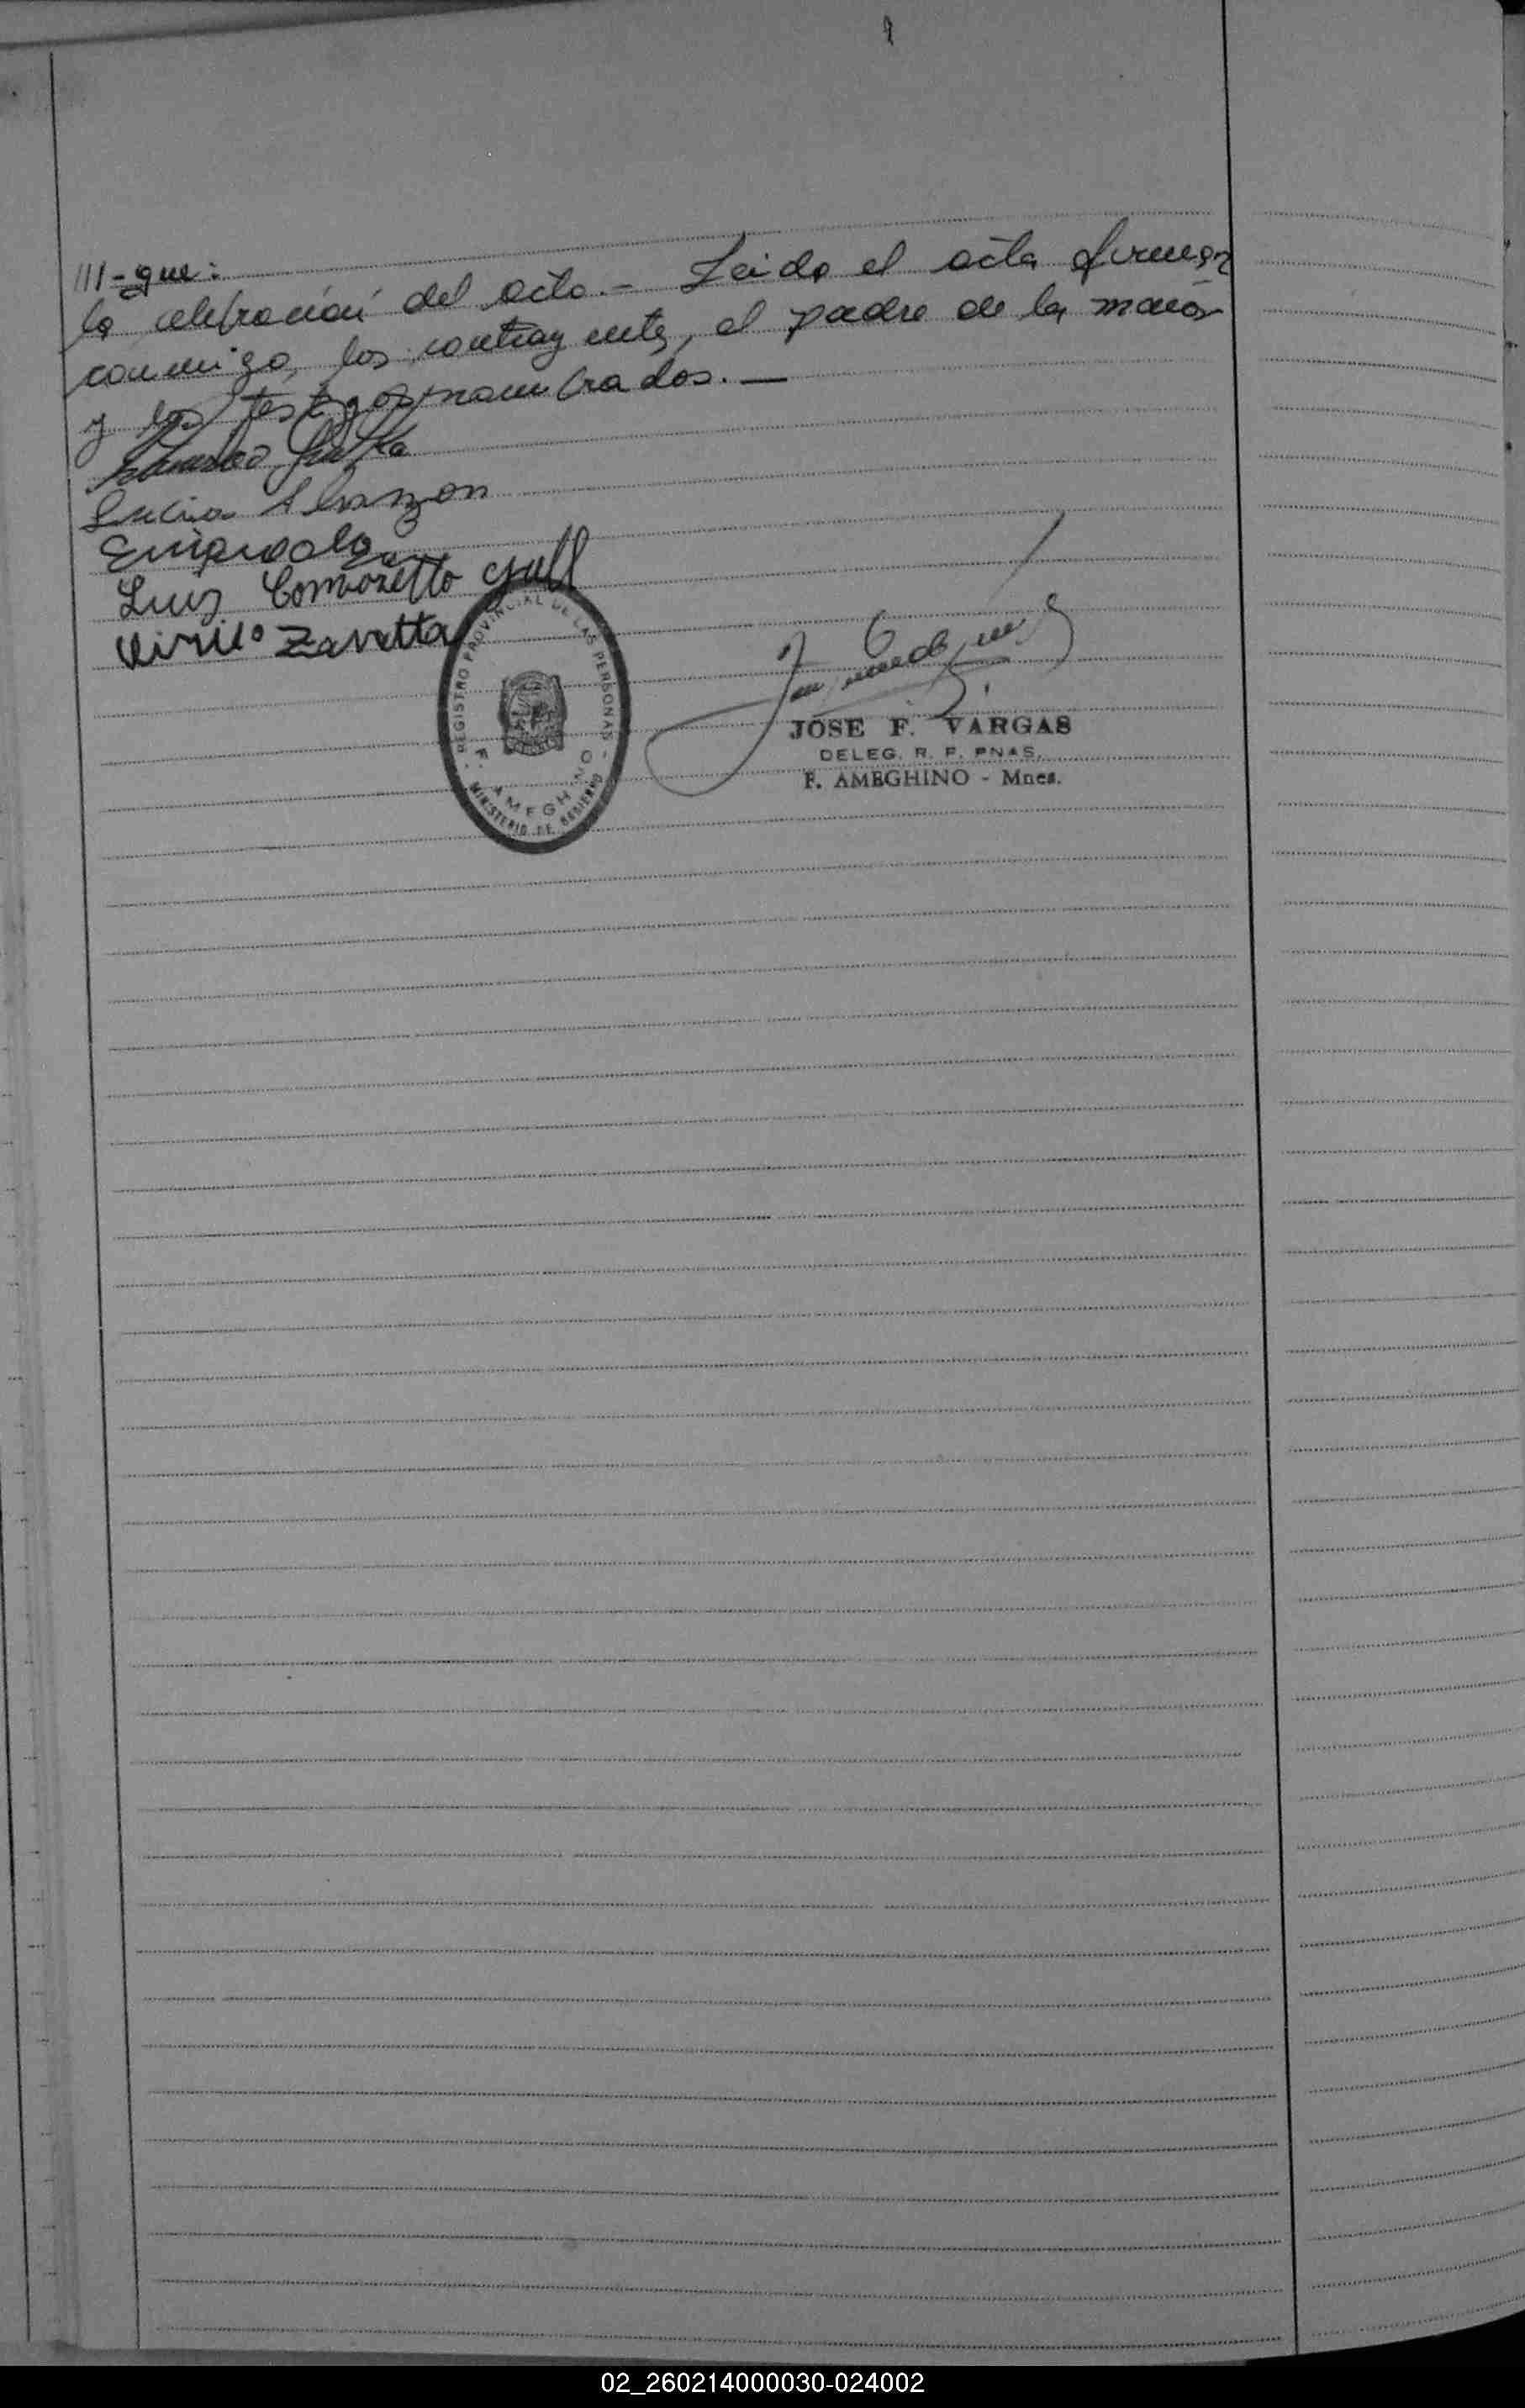 III-gue:
la celebración del acto.- Leida el acta firman
conmigo, los contrayente, el padre de la menor
y los testigos nombrados.—
Lucia Alarzon
Luis Comoretto
Virilo Zanatta
REGISTRO PROVINCIAL DE LAS PERSONAS
F. AMEGHINO
MINISTERIO DE GOBIERNO
JOSE F. VARGAS
DELEG. R. P. PNAS.
F. AMEGHINO - Mnes.
02_260214000030-024002